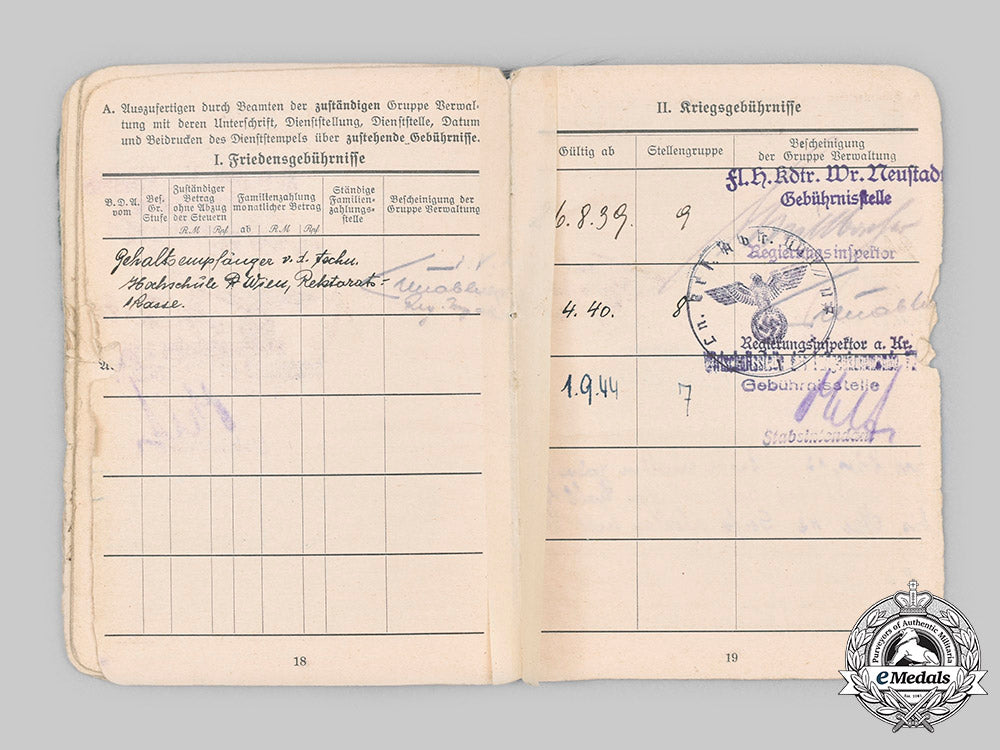 A. Auszufertigen durch Beamten der zuständigen Gruppe Verwal-
tung mit deren Unterschrift, Dienststellung, Dienststelle, Datum
und Beidrucken des Dienststempels über zustehende Gebührnisse.
I. Friedensgebührnisse
B. D. A. vom
Bes. Gr. Stufe
Zuständiger Betrag ohne Abzug der Steuern
RM Rpf
Familienzahlung monatlicher Betrag
ab RM Rpf
Ständige Familien-zahlungs-stelle
Bescheinigung der Gruppe Verwaltung
Gehaltsempfänger v. d. Techn.
Hochschule Wien, Rektorats-
kasse.
18
II. Kriegsgebührnisse
Gültig ab
Stellengruppe
Bescheinigung
der Gruppe Verwaltung
Fl. H. Kdtr. Wr. Neustadt
Gebührnisstelle
6.8.39. 9
Regierungsinspektor
4.40. 8
Regierungsinspektor a. Kr.
1.9.44 7
Gebührnisstelle
Stabsintendant
19
Purveyors of Authentic Militaria
eMedals